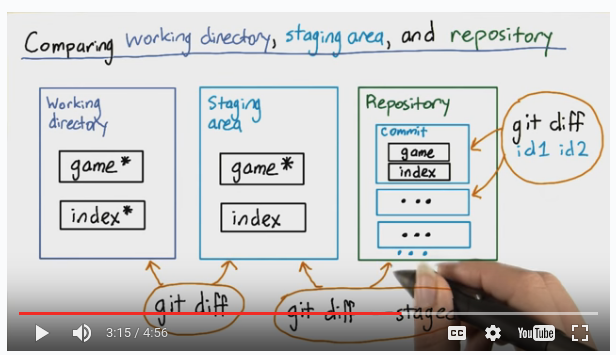 Comparing working directory, staging area, and repository
Working directory
game*
index*
Staging area
game*
index
Repository
commit
game
index
...
...
...
git diff
id1 id2
git diff
git diff --staged
3:15 / 4:56
CC
YouTube